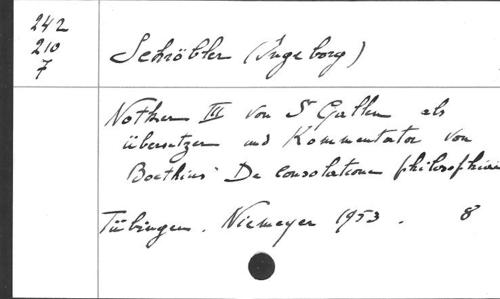 242
210
7
Schröbler (Ingeborg)
Notker III von St Gallen als
übersetzer und Kommentator von
Boethius' De consolatione philosophiae
Tübingen. Niemeyer 1953. 8